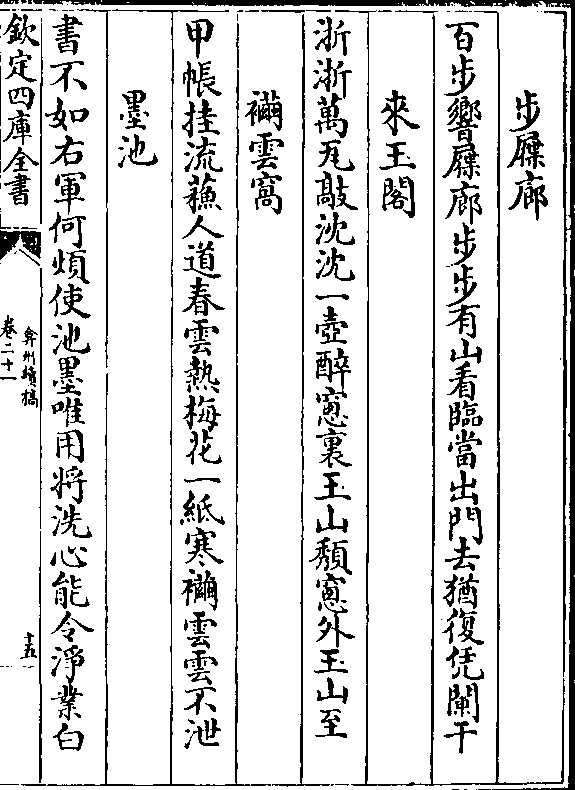 步屧廊
百步響屧廊步步有山看臨當出門去猶復凭闌干
來玉閣
浙浙萬瓦敲沈沈一壺醉窻裏玉山頽窻外玉山至
襺雲窩
甲帳挂流蘓人道春雲熱梅花一紙寒襺雲雲不泄
墨池
書不如右軍何煩使池墨唯用将洗心能令淨業白
欽定四庫全書
弇州續稿
卷二十一
十五